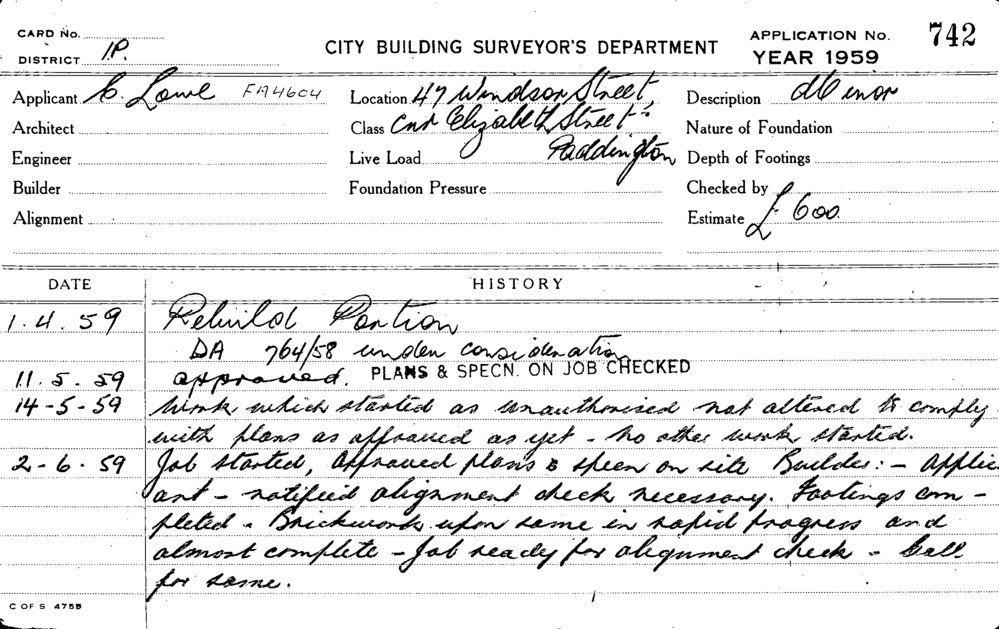 CARD No.
DISTRICT 1P.
CITY BUILDING SURVEYOR'S DEPARTMENT
APPLICATION No. 742
YEAR 1959
Applicant C. Lowe FA4604 Location 47 Windsor Street, Description Minor
Architect Class Cnr Elizabeth Street Nature of Foundation
Engineer Live Load Paddington Depth of Footings
Builder Foundation Pressure Checked by
Alignment Estimate £600
DATE HISTORY
1.4.59 Rebuild Portion
DA 764/58 under consideration
11.5.59 approved. PLANS & SPECN. ON JOB CHECKED
14-5-59 Work which started as unauthorised not altered to comply
with plans as approved as yet - No other work started.
2-6.59 Job started, approved plans & specn on site Builder: - Applic
ant - notified alignment check necessary. Footings com -
pleted - Brickwork upon same in rapid progress and
almost complete - Job ready for alignment check - Call
for same.
C OF S 4755